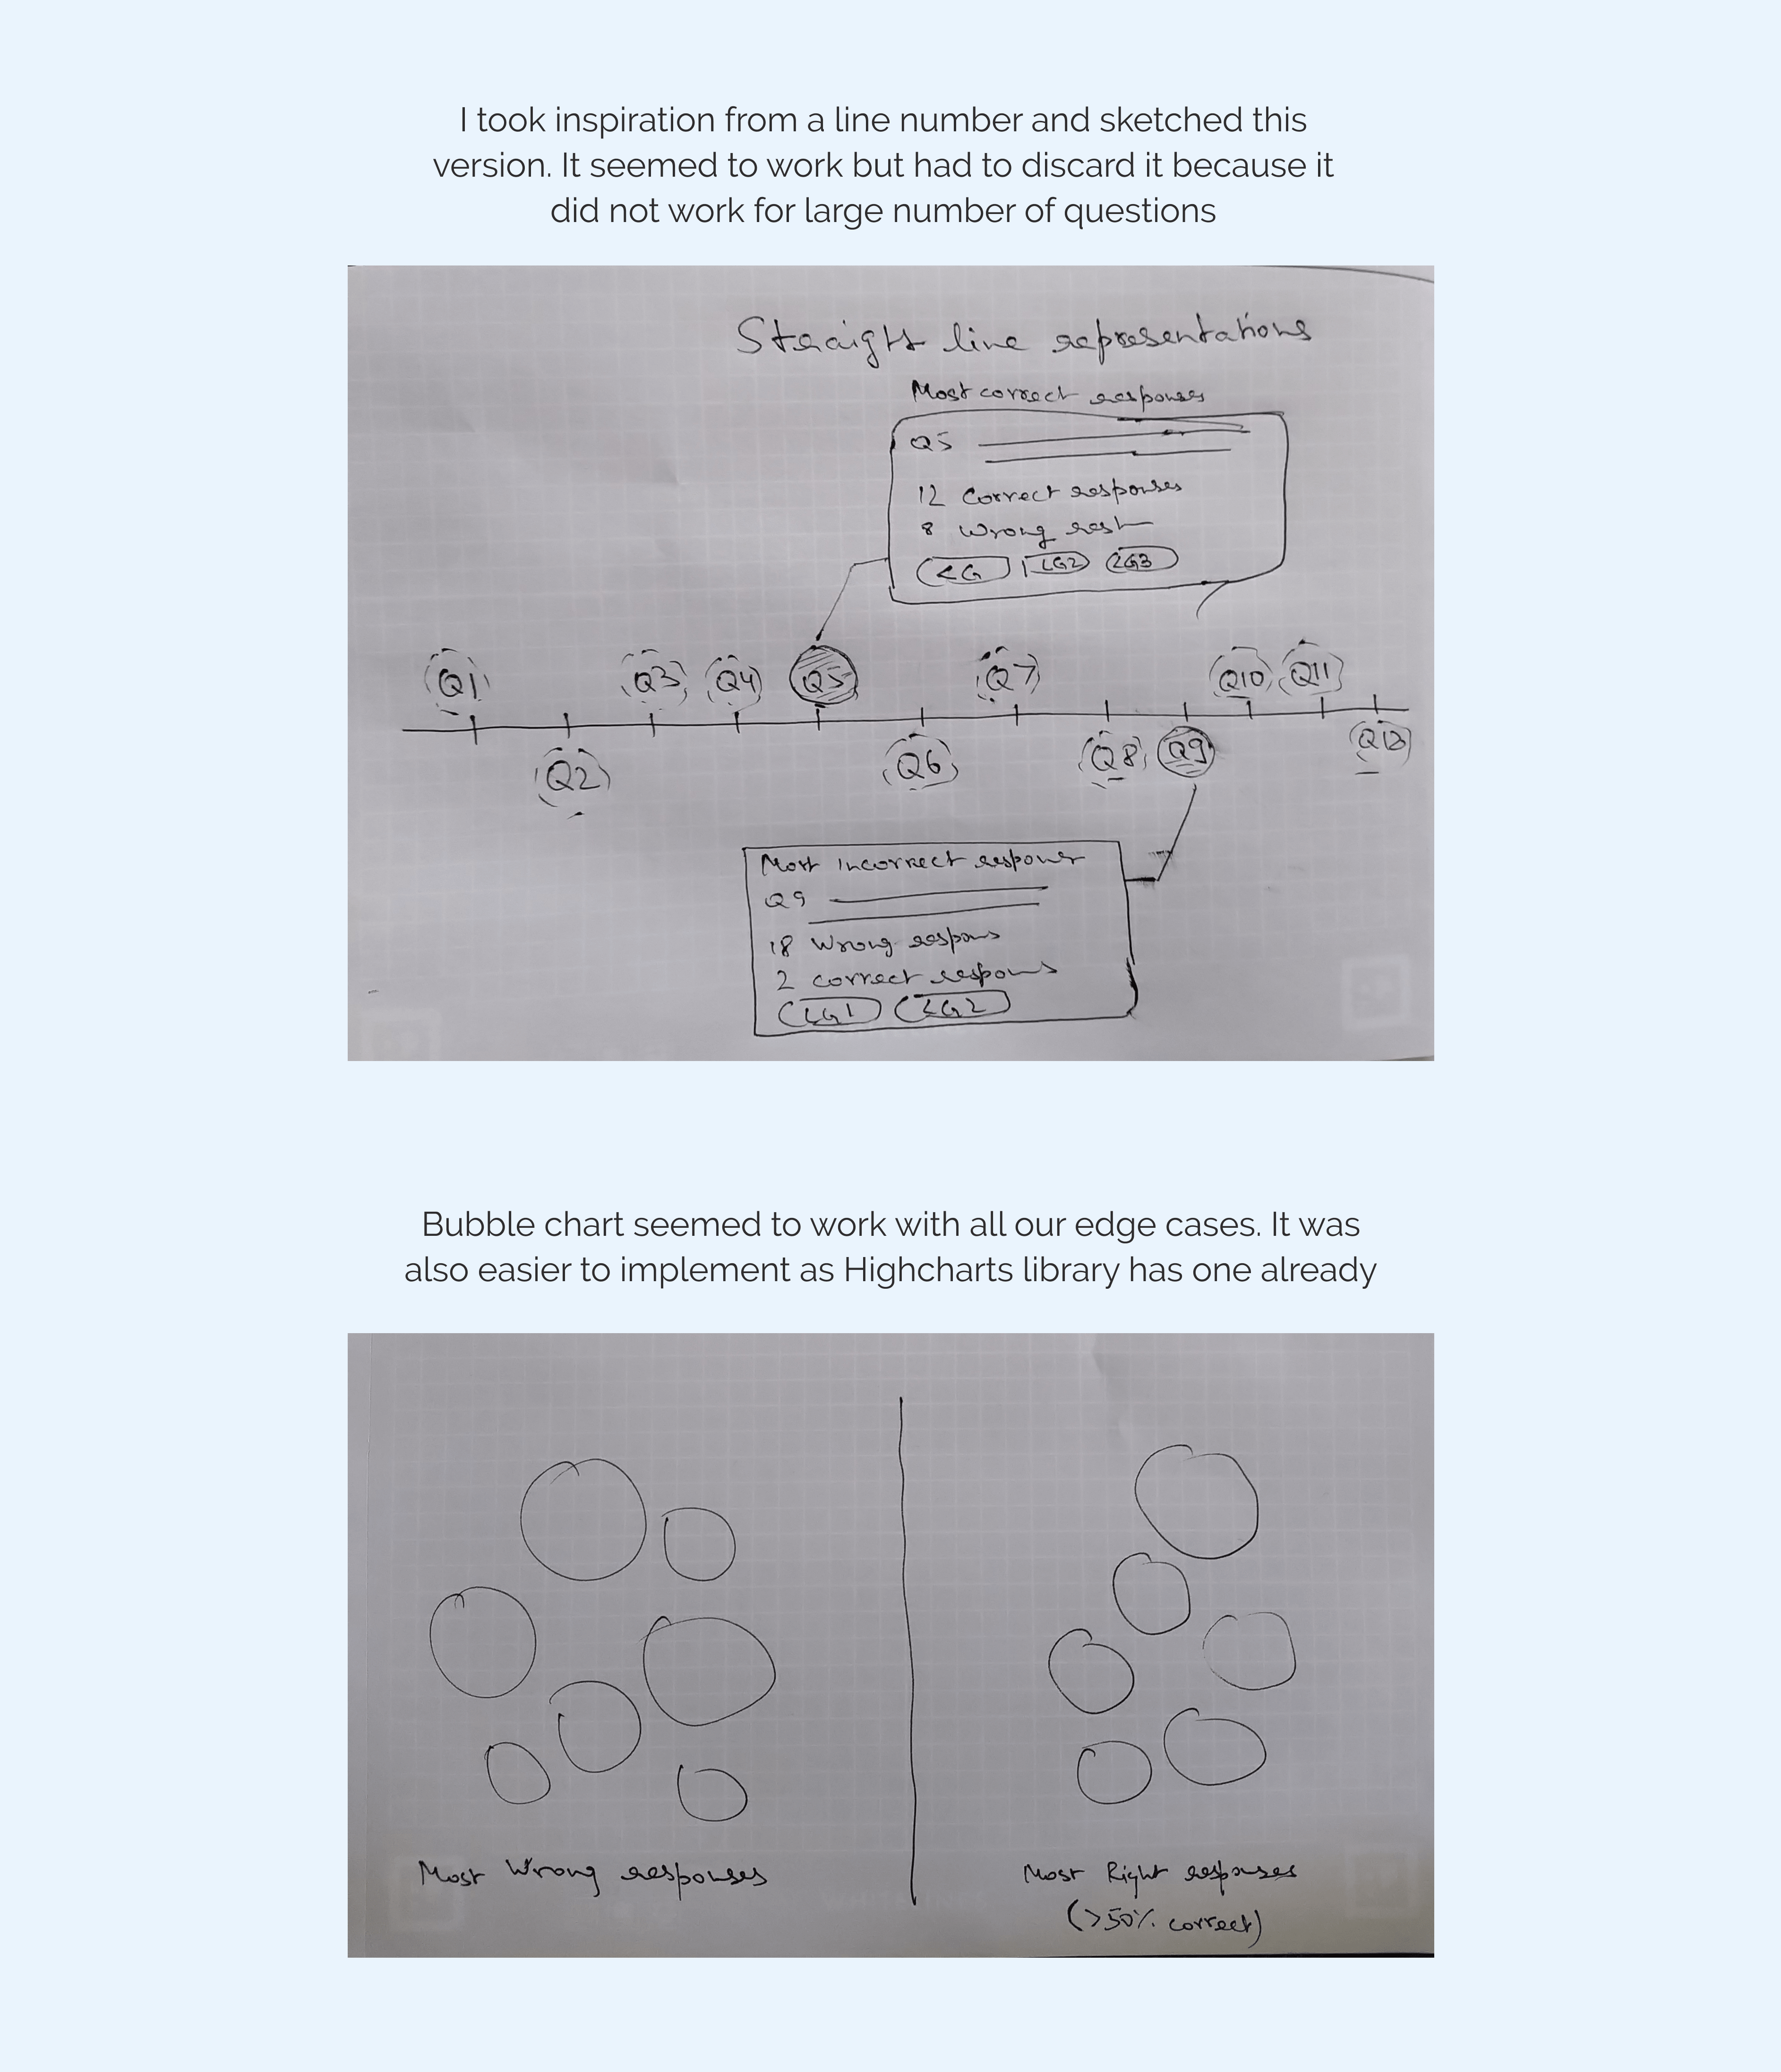 I took inspiration from a line number and sketched this
version. It seemed to work but had to discard it because it
did not work for large number of questions
Straight line representations
Most correct responses
Q5
12 Correct responses
8 Wrong
LG LG2 LG3
Q1 Q3 Q4 Q5 Q7 Q10 Q11
Q2 Q6 Q8 Q9
Most incorrect
Q9
18 Wrong
2 correct
LG1 LG2
Bubble chart seemed to work with all our edge cases. It was
also easier to implement as Highcharts library has one already
Most Wrong responses
Most Right responses
(>50% correct)